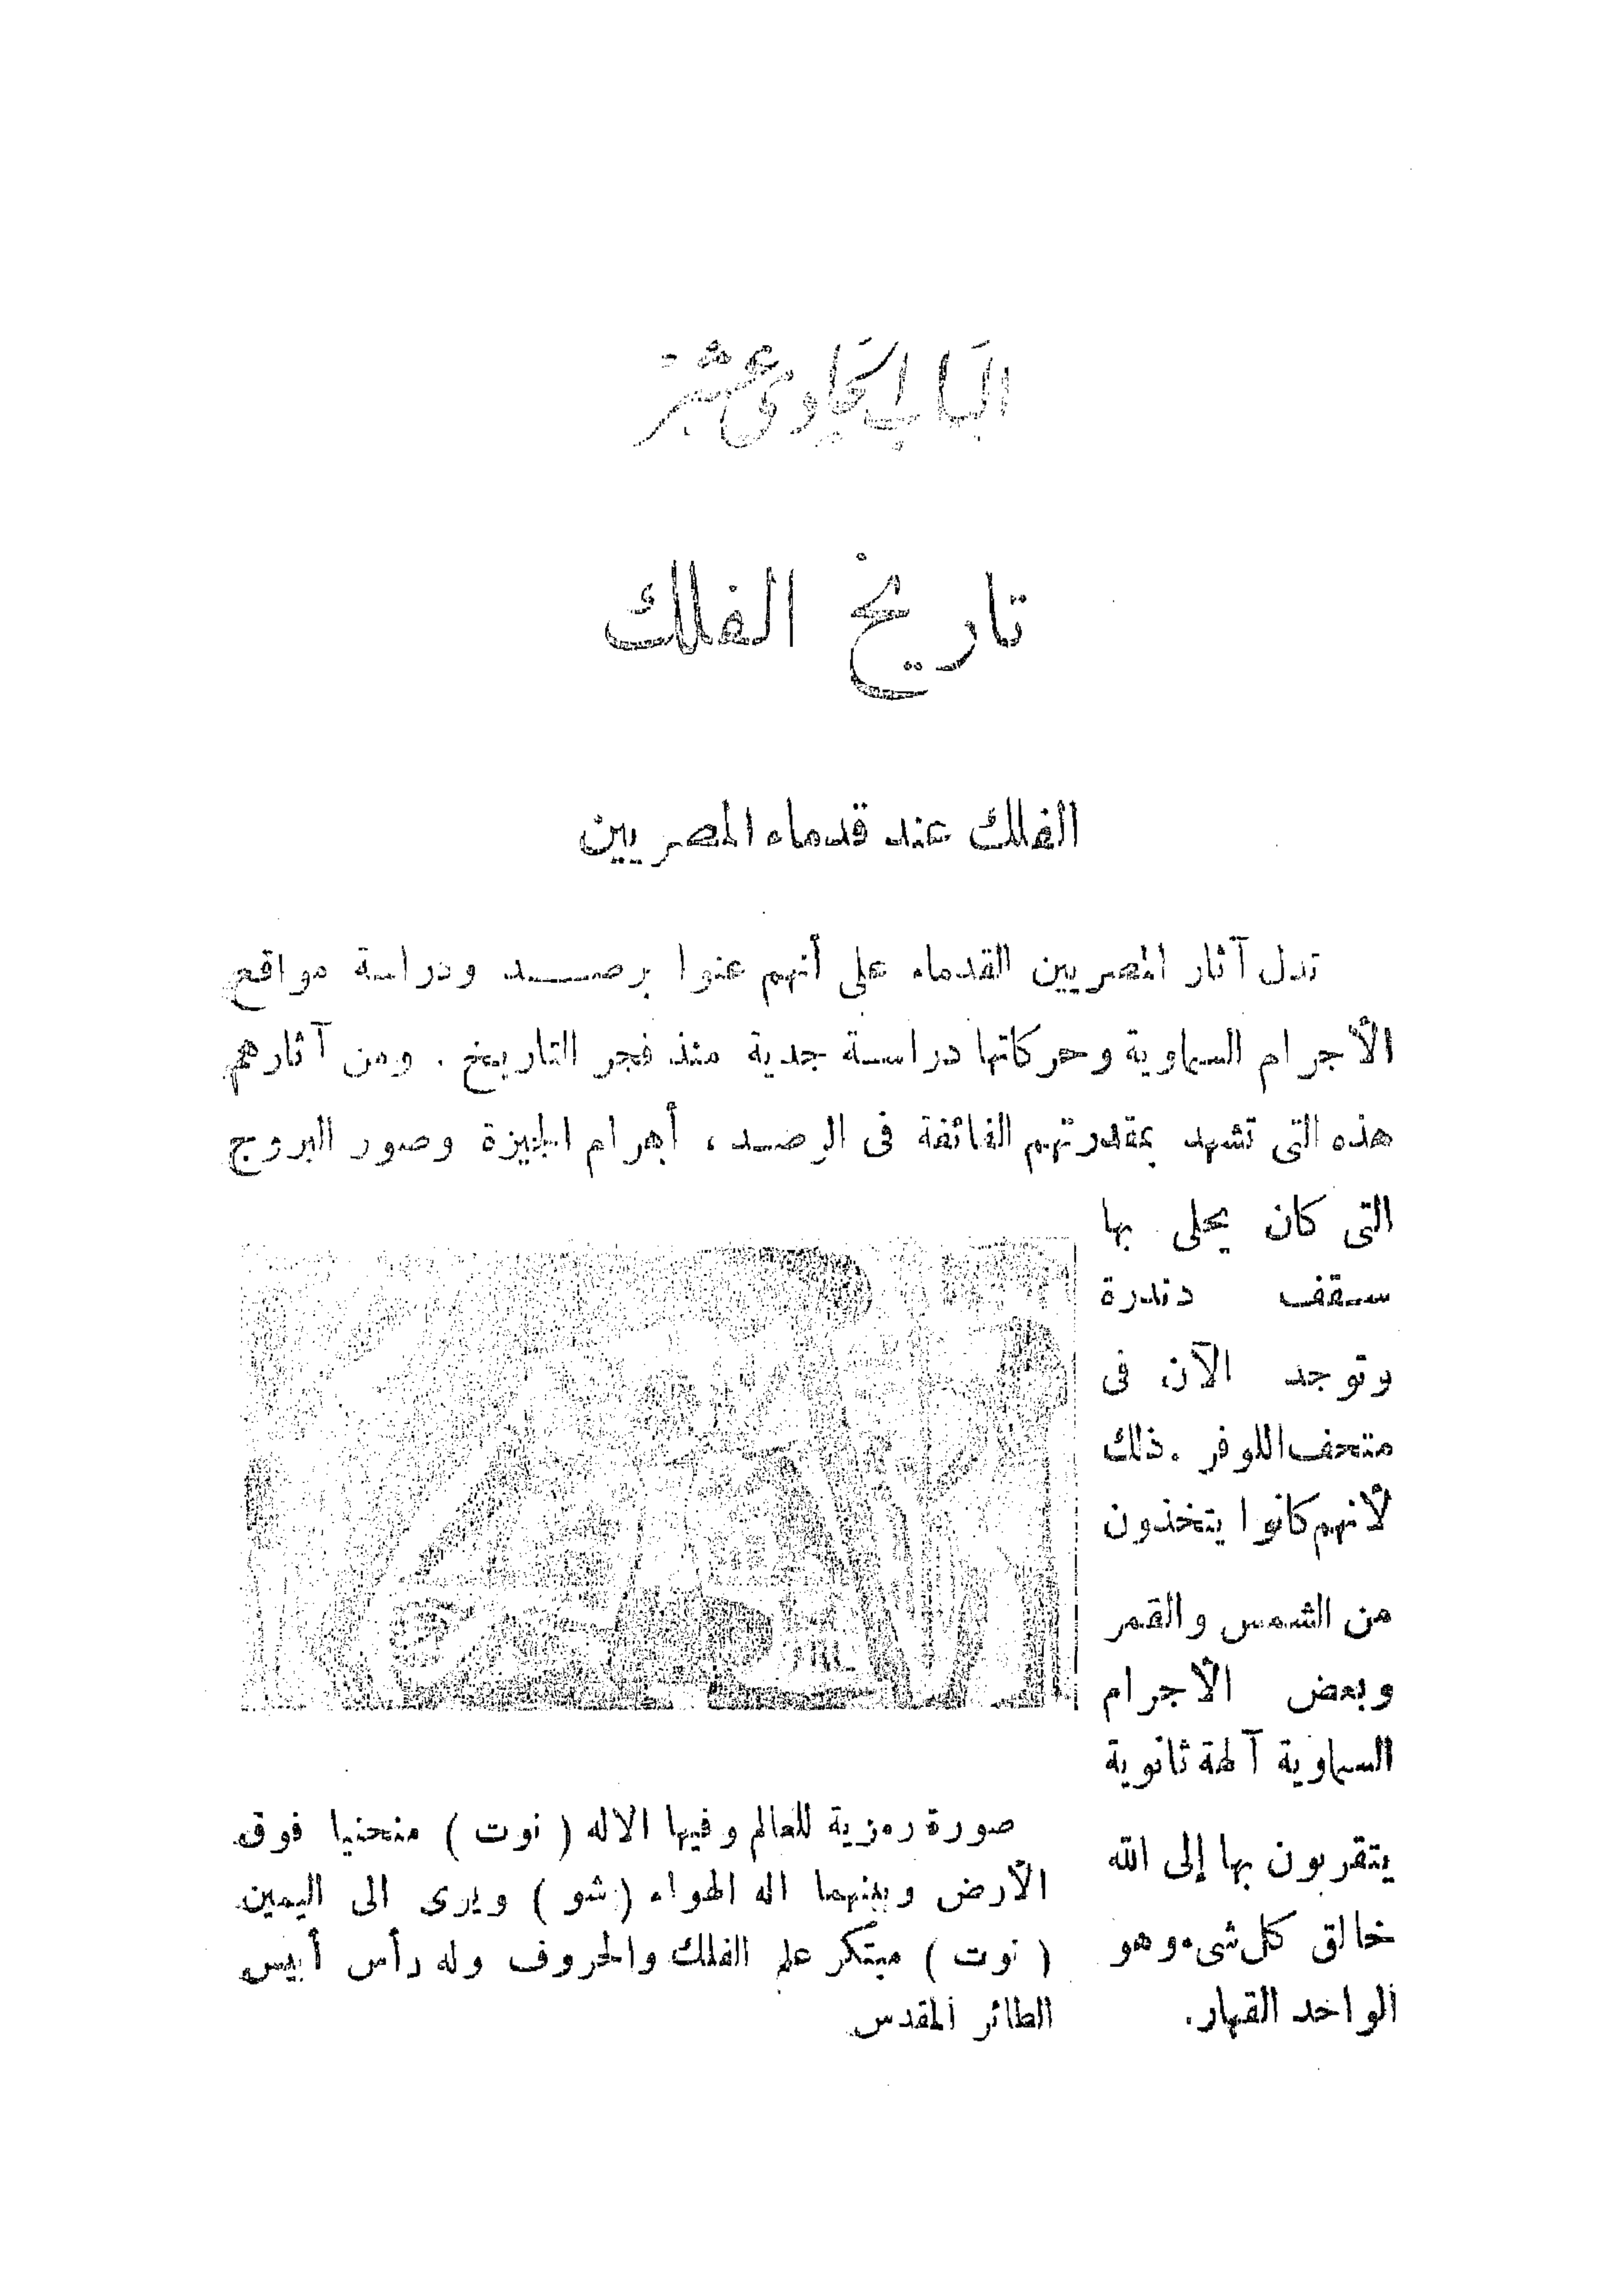 الباب الحادى عشر
تاريخ الفلك
الفلك عند قدماء المصريين
تدل آثار المصريين القدماء على أنهم عنوا برصد ودراسة مواقع
الأجرام السماوية وحركاتها دراسة جدية منذ فجر التاريخ . ومن آثارهم
هذه التى تشهد بمقدرتهم الفائقة فى الرصد ، أهرام الجيزة وصور البروج
التى كان يحلى بها
سقف دندرة
وتوجد الآن فى
متحف اللوفر . ذلك
لأنهم كانوا يتخذون
من الشمس والقمر
وبعض الأجرام
السماوية آلهة ثانوية
يتقربون بها إلى الله
خالق كل شىء وهو
الواحد القهار .
صورة رمزية للعالم وفيها الاله ( نوت ) منحنيا فوق
الأرض وبينهما اله الهواء ( شو ) ويرى الى اليمين
( نوت ) مبتكر علم الفلك والحروف وله رأس أبيس
الطائر المقدس